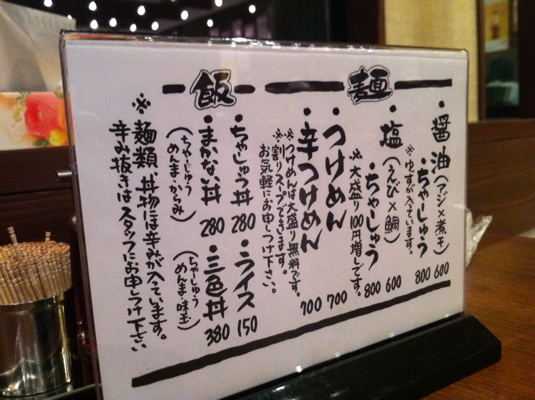 麺
・醤油(アジ×煮干) 600
ちゃーしゅう 800
※ゆずが入ています。
・塩(えび×鯛) 600
ちゃーしゅう 800
※大盛り100円増しです。
・つけめん 700
・辛つけめん 700
※つけめんは大盛り無料です。
※割りスープできます。
お気軽にお申しつけ下さい。
飯
・ちゃしゅう丼 280
・ライス 150
・まかない丼 280
(ちゃーしゅう
めんま・からみ)
・三色丼 380
(ちゃーしゅう
めんま・味玉)
※麺類、丼物は辛みが入ています。
辛み抜きはスタッフにお申しつけ下さい